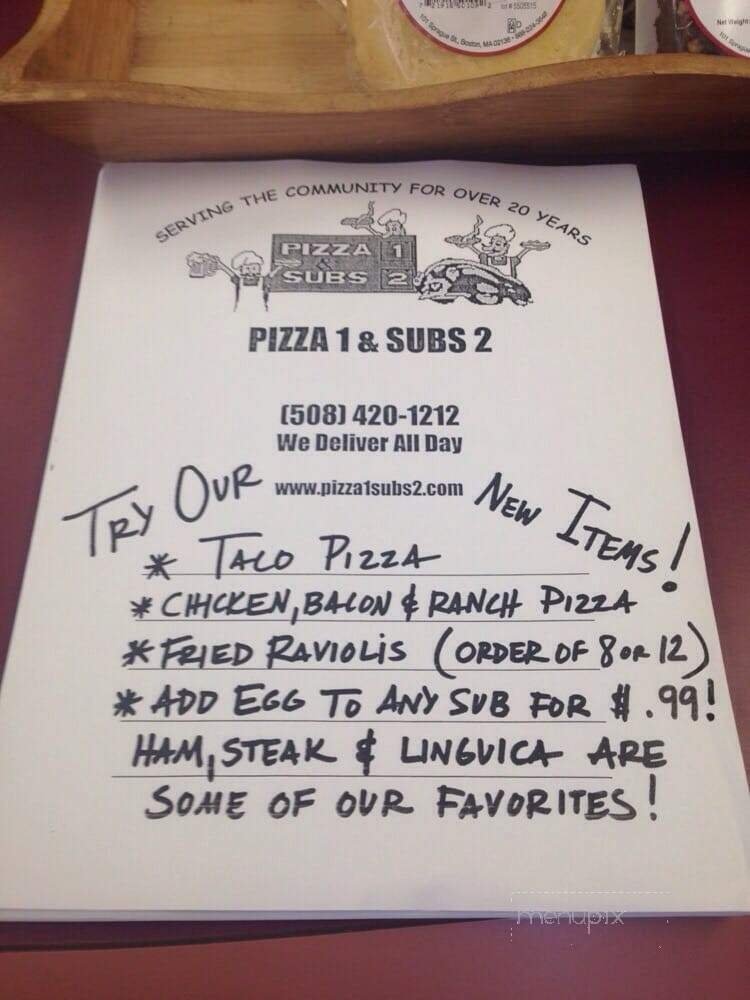 lot # 5505515
101 Sprague St., Boston, MA 02136 •
Net Weight
101 Sprague
SERVING THE COMMUNITY FOR OVER 20 YEARS
PIZZA 1
&
SUBS 2
PIZZA 1 & SUBS 2
(508) 420-1212
We Deliver All Day
www.pizza1subs2.com
TRY OUR NEW ITEMS!
* TACO PIZZA
* CHICKEN, BACON & RANCH PIZZA
* FRIED RAVIOLIS (ORDER OF 8 OR 12)
* ADD EGG TO ANY SUB FOR $.99!
HAM, STEAK & LINGUICA ARE
SOME OF OUR FAVORITES!
menupix